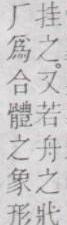 挂之。又若舟之狀
厂爲合體之象形